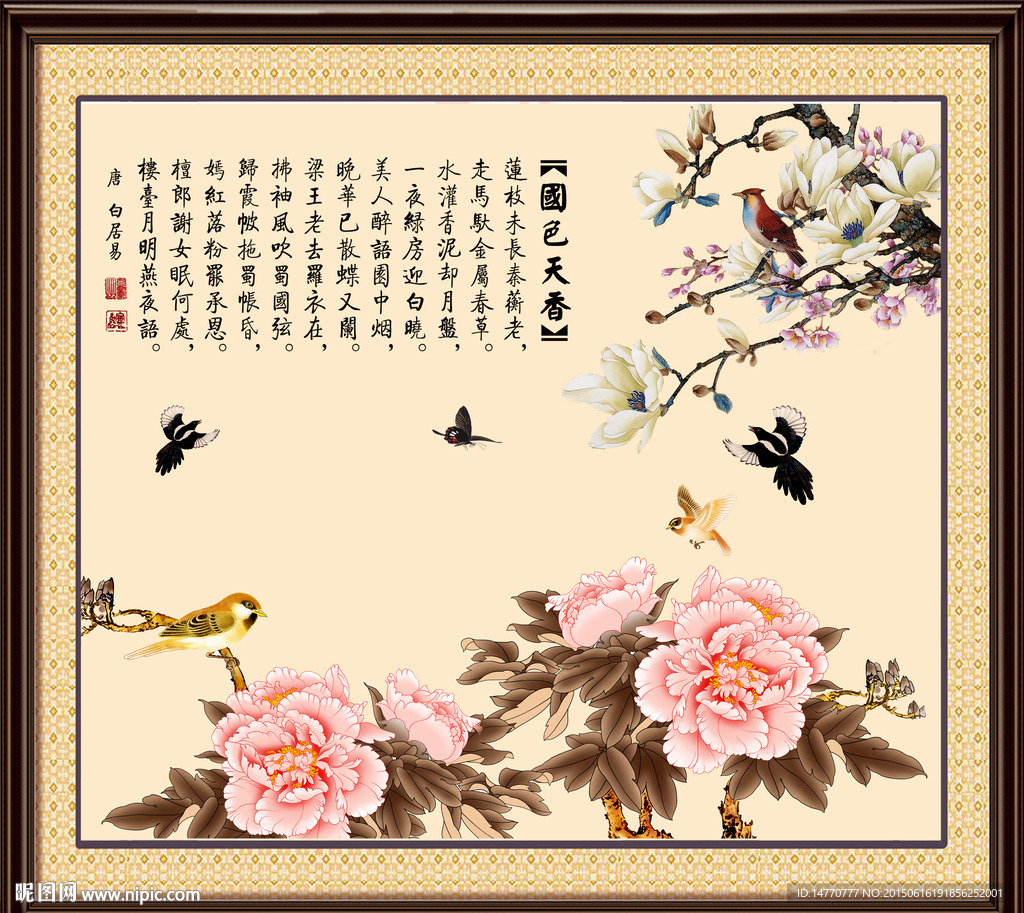 【國色天香】
蓮枝未長秦蘅老，
走馬馱金屬春草。
水灌香泥却月盤，
一夜綠房迎白曉。
美人醉語園中烟，
晚華已散蝶又闌。
梁王老去羅衣在，
拂袖風吹蜀國弦。
歸霞帔拖蜀帳昏，
嫣紅落粉罷承恩。
檀郎謝女眠何處，
樓臺月明燕夜語。
唐 白居易
昵图网 www.nipic.com
ID:14770777 NO:20150616191856252001